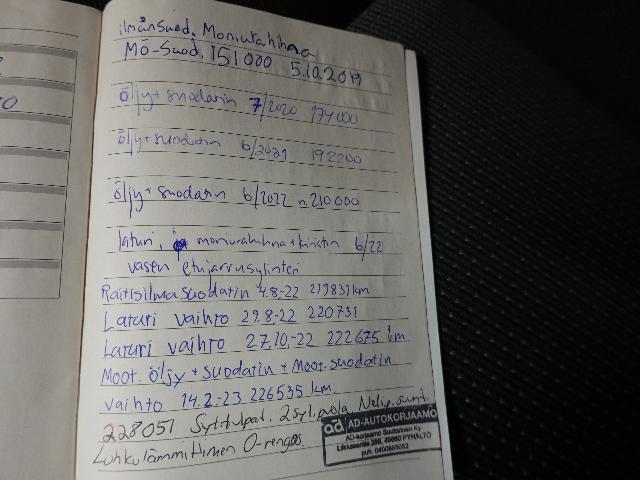 ilmansuod. Moniurahihna
Mö-Suod. 151000 5.10.2019
öljy + suodatin 7/2020 174000
öljy + suodatin 6/2021 192200
öljy + suodatin 6/2022 n.210000
laturi, moniurahihna + kiristin 6/22
vasen etujarrusylinteri
Raitisilmasuodatin 4.8.-22 219831km
Laturi vaihto 29.8.-22 220731
Laturi vaihto 27.10.-22 222675 km
Moot. öljy + suodatin + Moot. suodatin
vaihto 14.2.-23 226535 km.
228051 Sytytulpat. 2syl. puola
Lohkolämmittimen O-rengas
ad AD-AUTOKORJAAMO
AD-korjaamo Suutarinen Ky
49860 PYHÄLTÖ
puh.